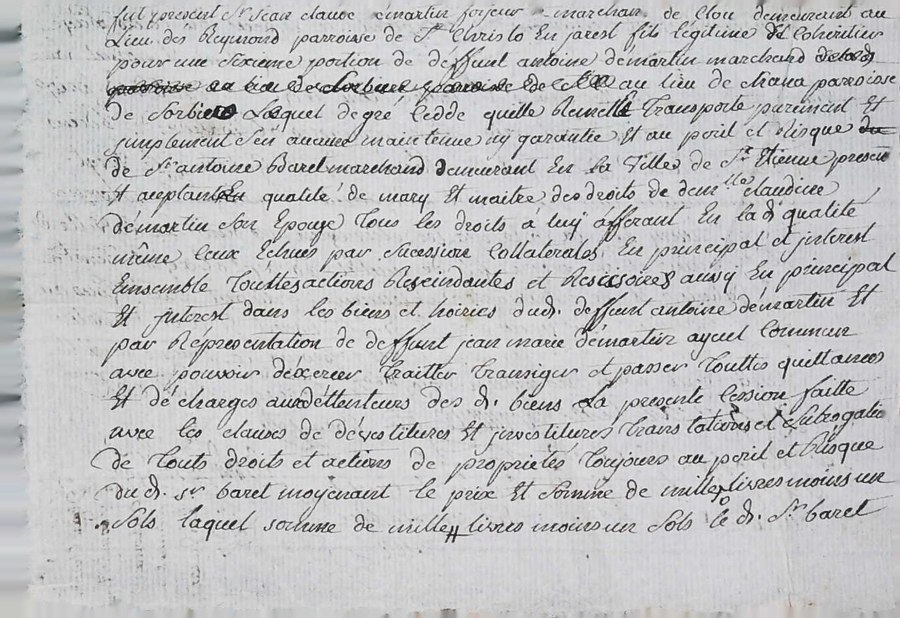 fut present Sr jean claude démartin forjeur marchan de clou demeurant au
Lieu des Reymond parroisse de St Christo En jarest fils légitime et coheritier
pour une sixieme portion de deffunt antoine démartin marchand
au lieu de chana parroisse
de Sorbier Lequel de gré Cedde quitte Remette transporte purement Et
simplement sen aucune maintenue ny garantie Et au peril et Risque du
de Sr antoine Baret marchand demeurant En la ville de St Etienne present
Et aceptant En qualité de mary Et maitre des droits de demlle claudine
démartin son Epouse Tous les droits à luy afferant En lad qualité
même ceux Echues par sucession Collaterales En principal et jnterest
Ensemble Touttes actions Rescindantes et Rescisoires aussy En principal
Et jnterest dans les biens et hoiries dud. deffunt antoine démartin Et
par Representation de deffunt jean marie démartin ayeul Commun
avec pouvoir déxcercer traitter transiger et passer Touttes quittances
Et décharges aux détteniteurs des d. biens La presente Cession faitte
avec les clauses de dévestitures Et jnvestitures translations et subrogatio
de Touts droits et actions de proprietés Toujours au peril et Risque
du d. sr baret moyenant le prix Et somme de mille livres moins un
Sols laquel somme de mille livres moins un Sols le d. Sr baret